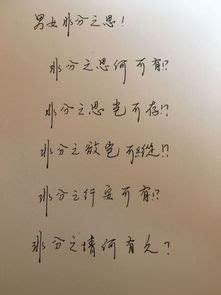 男女非分之思！
非分之思何可有⁉
非分之思岂可存⁉
非分之欲岂可纵⁉
非分之行安可有⁉
非分之情何有久？